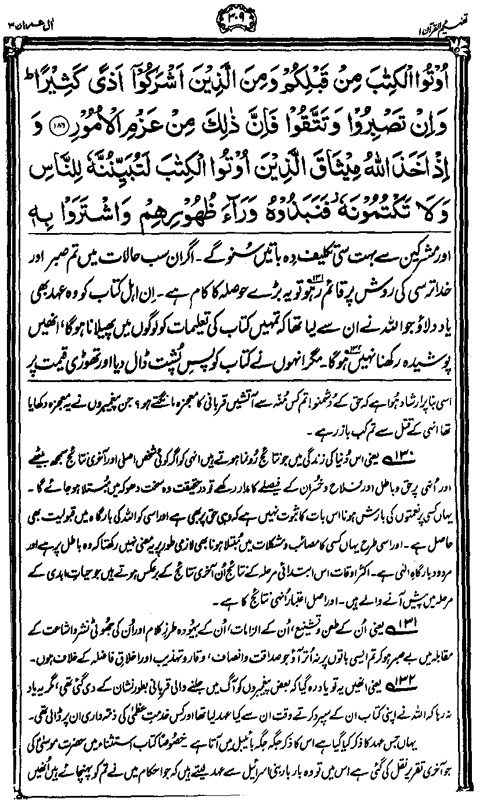 تفہیم القرآن ۱ ۳۰۹ اٰل عمران ۳
اُوْتُوا الْكِتٰبَ مِنْ قَبْلِكُمْ وَمِنَ الَّذِيْنَ اَشْرَكُوْۤا اَذًى كَثِيْرًا ؕ
وَاِنْ تَصْبِرُوْا وَتَتَّقُوْا فَاِنَّ ذٰلِكَ مِنْ عَزْمِ الْاُمُوْرِ ﴿۱۸۶﴾ وَ
اِذْ اَخَذَ اللّٰهُ مِيْثَاقَ الَّذِيْنَ اُوْتُوا الْكِتٰبَ لَتُبَيِّنُنَّهٗ لِلنَّاسِ
وَلَا تَكْتُمُوْنَهٗ ؗ فَنَبَذُوْهُ وَرَآءَ ظُهُوْرِهِمْ وَاشْتَرَوْا بِهٖ
اور مشرکین سے بہت سی تکلیف دہ باتیں سُنو گے۔ اگر ان سب حالات میں تم صبر اور
خدا ترسی کی روش پر قائم رہو۱۳۱ تو یہ بڑے حوصلہ کا کام ہے۔ اِن اہلِ کتاب کو وہ عہد بھی
یاد دلاؤ جو اللہ نے ان سے لیا تھا کہ تمہیں کتاب کی تعلیمات کو لوگوں میں پھیلانا ہوگا، انھیں
پوشیدہ رکھنا نہیں ہوگا۱۳۲۔ مگر انہوں نے کتاب کو پسِ پُشت ڈال دیا اور تھوڑی قیمت پر
اسی بنا پر ارشاد ہُوا ہے کہ حق کے دشمنو! تم کس مُنہ سے آتشیں قربانی کا معجزہ مانگتے ہو؟ جن پیغمبروں نے یہ معجزہ دکھایا
تھا انہی کے قتل سے تم کب باز رہے۔
۱۳۰؎ یعنی اس دُنیا کی زندگی میں جو نتائج رُونما ہوتے ہیں انہی کو اگر کوئی شخص اصلی اور آخری نتائج سمجھ بیٹھے
اور اُنہی پر حق و باطل اور فلاح و خُسران کے فیصلے کا مدار رکھے تو درحقیقت وہ سخت دھوکہ میں مُبتلا ہو جائے گا۔
یہاں کسی پر نعمتوں کی بارش ہونا اس بات کا ثبوت نہیں ہے کہ وہی حق پر بھی ہے اور اسی کو اللہ کی بارگاہ میں قبولیت بھی
حاصل ہے۔ اور اسی طرح یہاں کسی کا مصائب و مشکلات میں مُبتلا ہونا بھی لازمی طور پر یہ معنی نہیں رکھتا کہ وہ باطل پر ہے اور
مردود بارگاہِ الٰہی ہے۔ اکثر اوقات اس ابتدائی مرحلہ کے نتائج اُن آخری نتائج کے برعکس ہوتے ہیں جو حیاتِ ابدی کے
مرحلہ میں پیش آنے والے ہیں۔ اور اصل اعتبار اُنہی نتائج کا ہے۔
۱۳۱؎ یعنی اُن کے طعن و تشنیع، اُن کے الزامات، اُن کے بیہودہ طرزِ کلام اور اُن کی جُھوٹی نشر و اشاعت کے
مقابلہ میں بے صبر ہو کر تم ایسی باتوں پر نہ اُتر آؤ جو صداقت و انصاف، وقار و تہذیب اور اخلاقِ فاضلہ کے خلاف ہوں۔
۱۳۲؎ یعنی انھیں یہ تو یاد رہ گیا کہ بعض پیغمبروں کو آگ میں جلنے والی قربانی بطور نشان کے دی گئی تھی، مگر یہ یاد
نہ رہا کہ اللہ نے اپنی کتاب ان کے سپرد کرتے وقت ان سے کیا عہد لیا تھا اور کس خدمتِ عظمٰی کی ذمہ داری ان پر ڈالی تھی۔
یہاں جس عہد کا ذکر کیا گیا ہے اس کا ذکر جگہ جگہ بائیبل میں آتا ہے۔ خصُوصًا کتاب استثناء میں حضرت موسیٰؑ کی
جو آخری تقریر نقل کی گئی ہے اس میں تو وہ بار بار بنی اسرائیل سے عہد لیتے ہیں کہ جو احکام میں نے تم کو پہنچائے ہیں اُنھیں